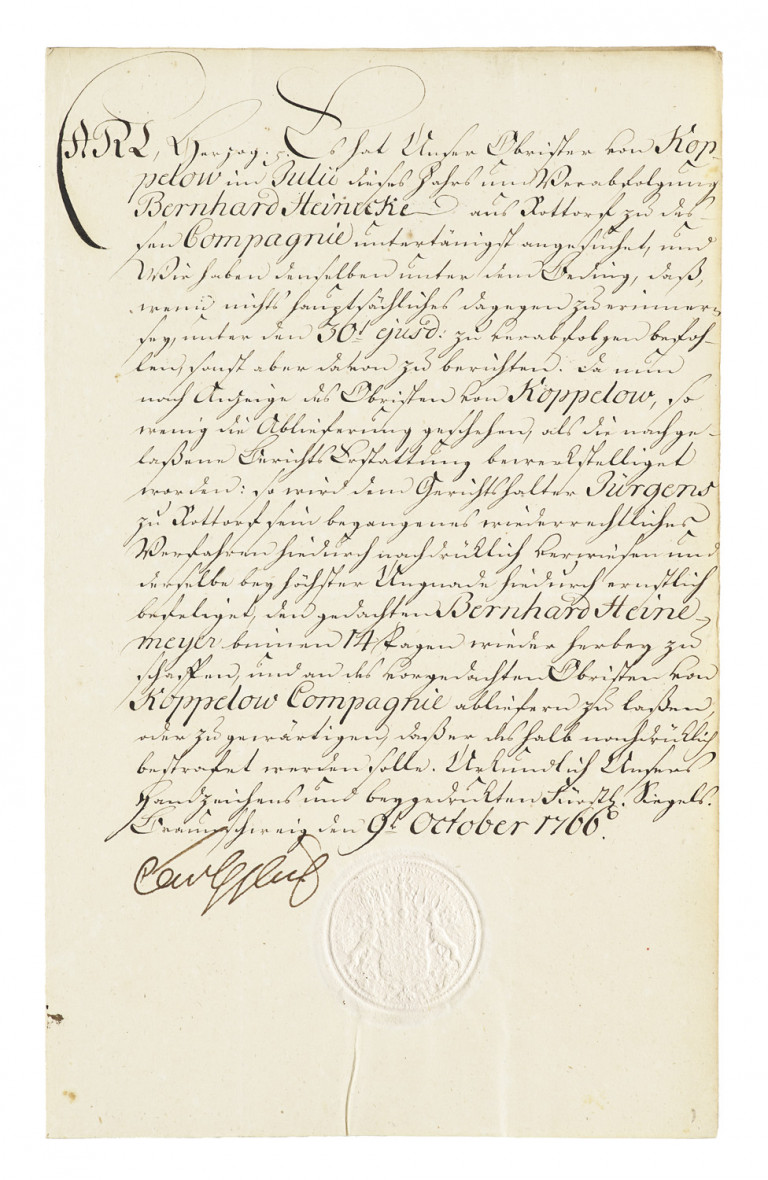 CARL, Herzog p. Es hat Unser Obrister von Kop-
pelow im Julio dieses Jahrs um Verabfolgung
Bernhard Heinecke aus Rottorf zu des-
sen Compagnie untertänigst angesuchet, und
Wir haben denselben unter dem Beding, daß,
wenn nichts hauptsächliches dagegen zu erinnern
sey, unter den 30t ejusd: zu verabfolgen befoh-
len, sonst aber davon zu berichten. Da nun
nach Anzeige des Obristen von Koppelow, so
wenig die Ablieferung geschehen, als die nachge-
laßene Berichts Erstattung bewerkstelliget
worden: so wird dem Gerichtshalter Jürgens
zu Rottorf sein begangenes wiederrechtliches
Verfahren hiedurch nachdrücklich verwiesen und
derselbe bey höchster Ungnade hiedurch ernstlich
befeliget, den gedachten Bernhard Heine-
meyer binnen 14 Tagen wieder herbey zu
schaffen, und an des vorgedachten Obristen von
Koppelow Compagnie abliefern zu laßen,
oder zu gewärtigen, daß er deshalb nachdrücklich
bestrafet werden solle. Urkundlich Unsers
Handzeichens und beygedruckten Fürstl. Siegels.
Braunschweig den 9t October 1766.
Carl HzBuL